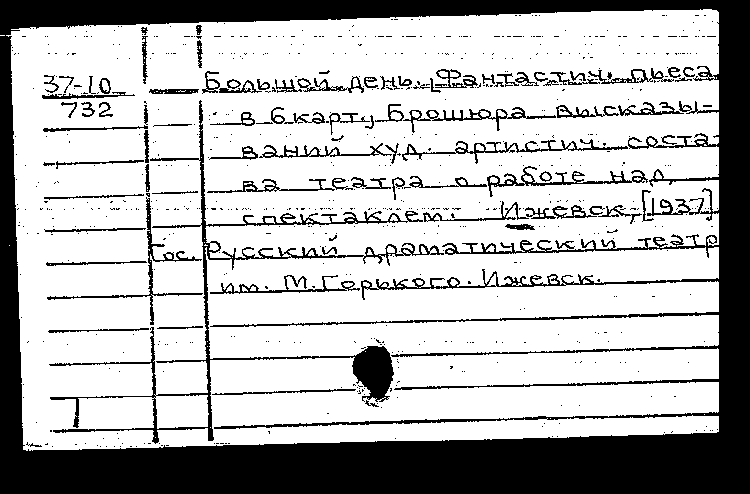 37-10
732
Большой день. Фантастич. пьеса
в 6 карт. Брошюра высказы-
ваний худ. артистич. соста-
ва театра о работе над
спектаклем. Ижевск, [1937]
Гос. Русский драматический театр
им. М. Горького. Ижевск.
1